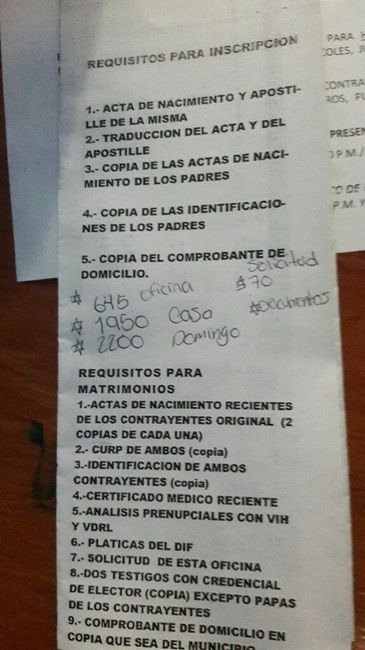 REQUISITOS PARA INSCRIPCION
1.- ACTA DE NACIMIENTO Y APOSTI-
LLE DE LA MISMA
2.- TRADUCCION DEL ACTA Y DEL
APOSTILLE
3.- COPIA DE LAS ACTAS DE NACI-
MIENTO DE LOS PADRES
4.- COPIA DE LAS IDENTIFICACIO-
NES DE LOS PADRES
5.- COPIA DEL COMPROBANTE DE
DOMICILIO.
$ 645 oficina
$ 1950 Casa
$ 2200 Domingo
Solicitud
$70
REQUISITOS PARA
MATRIMONIOS
1.-ACTAS DE NACIMIENTO RECIENTES
DE LOS CONTRAYENTES ORIGINAL (2
COPIAS DE CADA UNA)
2.- CURP DE AMBOS (copia)
3.-IDENTIFICACION DE AMBOS
CONTRAYENTES (copia)
4.-CERTIFICADO MEDICO RECIENTE
5.-ANALISIS PRENUPCIALES CON VIH
Y VDRL
6.- PLATICAS DEL DIF
7.- SOLICITUD DE ESTA OFICINA
8.-DOS TESTIGOS CON CREDENCIAL
DE ELECTOR (COPIA) EXCEPTO PAPAS
DE LOS CONTRAYENTES
9.- COMPROBANTE DE DOMICILIO EN
COPIA QUE SEA DEL MUNICIPIO
PARA
COLES, J
CONTRA
ROS, PU
PRESEN
P.M./
P.M. Y